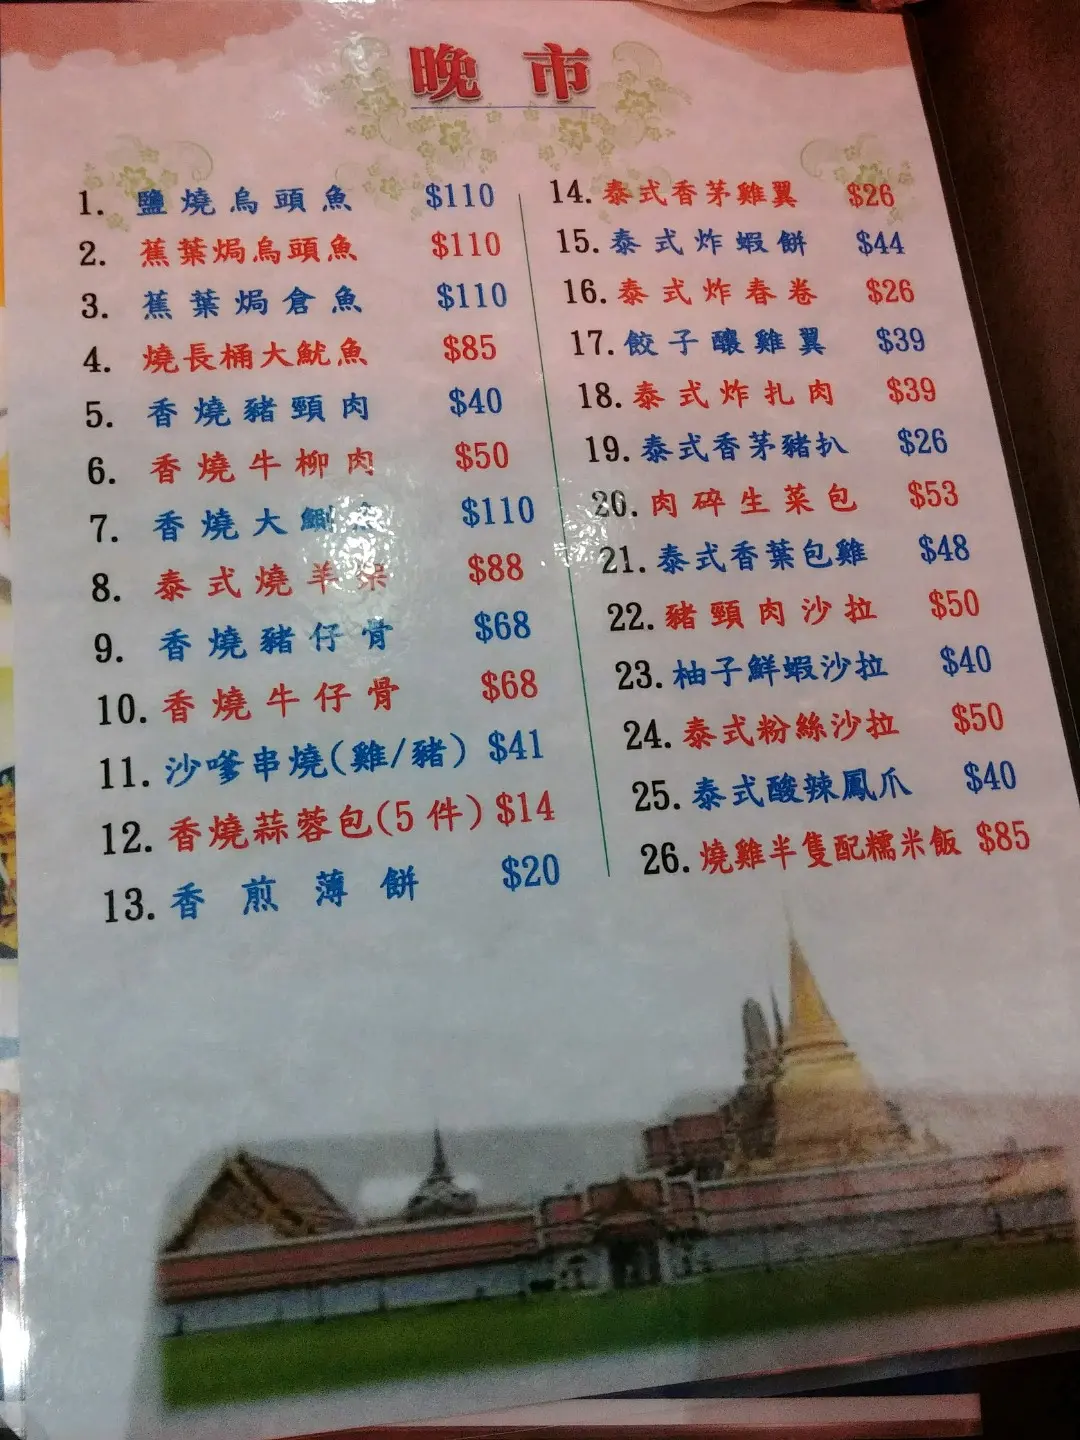 晚市
1. 鹽燒烏頭魚 $110
2. 蕉葉焗烏頭魚 $110
3. 蕉葉焗倉魚 $110
4. 燒長桶大魷魚 $85
5. 香燒豬頸肉 $40
6. 香燒牛柳肉 $50
7. 香燒大鰂 $110
8. 泰式燒羊 $88
9. 香燒豬仔骨 $68
10. 香燒牛仔骨 $68
11. 沙嗲串燒(雞/豬) $41
12. 香燒蒜蓉包(5件) $14
13. 香煎薄餅 $20
14. 泰式香茅雞翼 $26
15. 泰式炸蝦餅 $44
16. 泰式炸春卷 $26
17. 餃子釀雞翼 $39
18. 泰式炸扎肉 $39
19. 泰式香茅豬扒 $26
20. 肉碎生菜包 $53
21. 泰式香葉包雞 $48
22. 豬頸肉沙拉 $50
23. 柚子鮮蝦沙拉 $40
24. 泰式粉絲沙拉 $50
25. 泰式酸辣鳳爪 $40
26. 燒雞半隻配糯米飯 $85